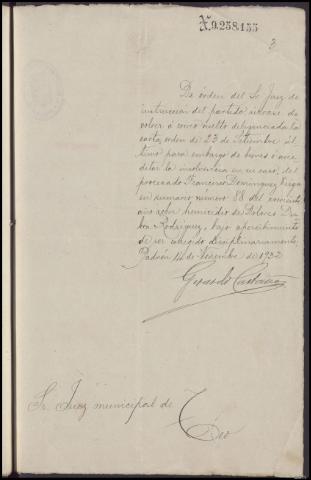 X.9.258.155
8
De órden del Sr. Juez de
instrucción del partido sírvase de-
volver á correo vuelto diligenciada la
carta orden de 23 de Setiembre úl-
timo para embargo de bienes ó acre-
ditar la insolvencia en su caso, del
procesado Francisco Dominguez
en sumario número 88 del corriente
año sobre homicidio de Dolores
Rodriguez, bajo apercibimiento
de ser corregido disciplinariamente.
Padrón 14 de de 1932
Gerardo
Sr. Juez municipal de Teo